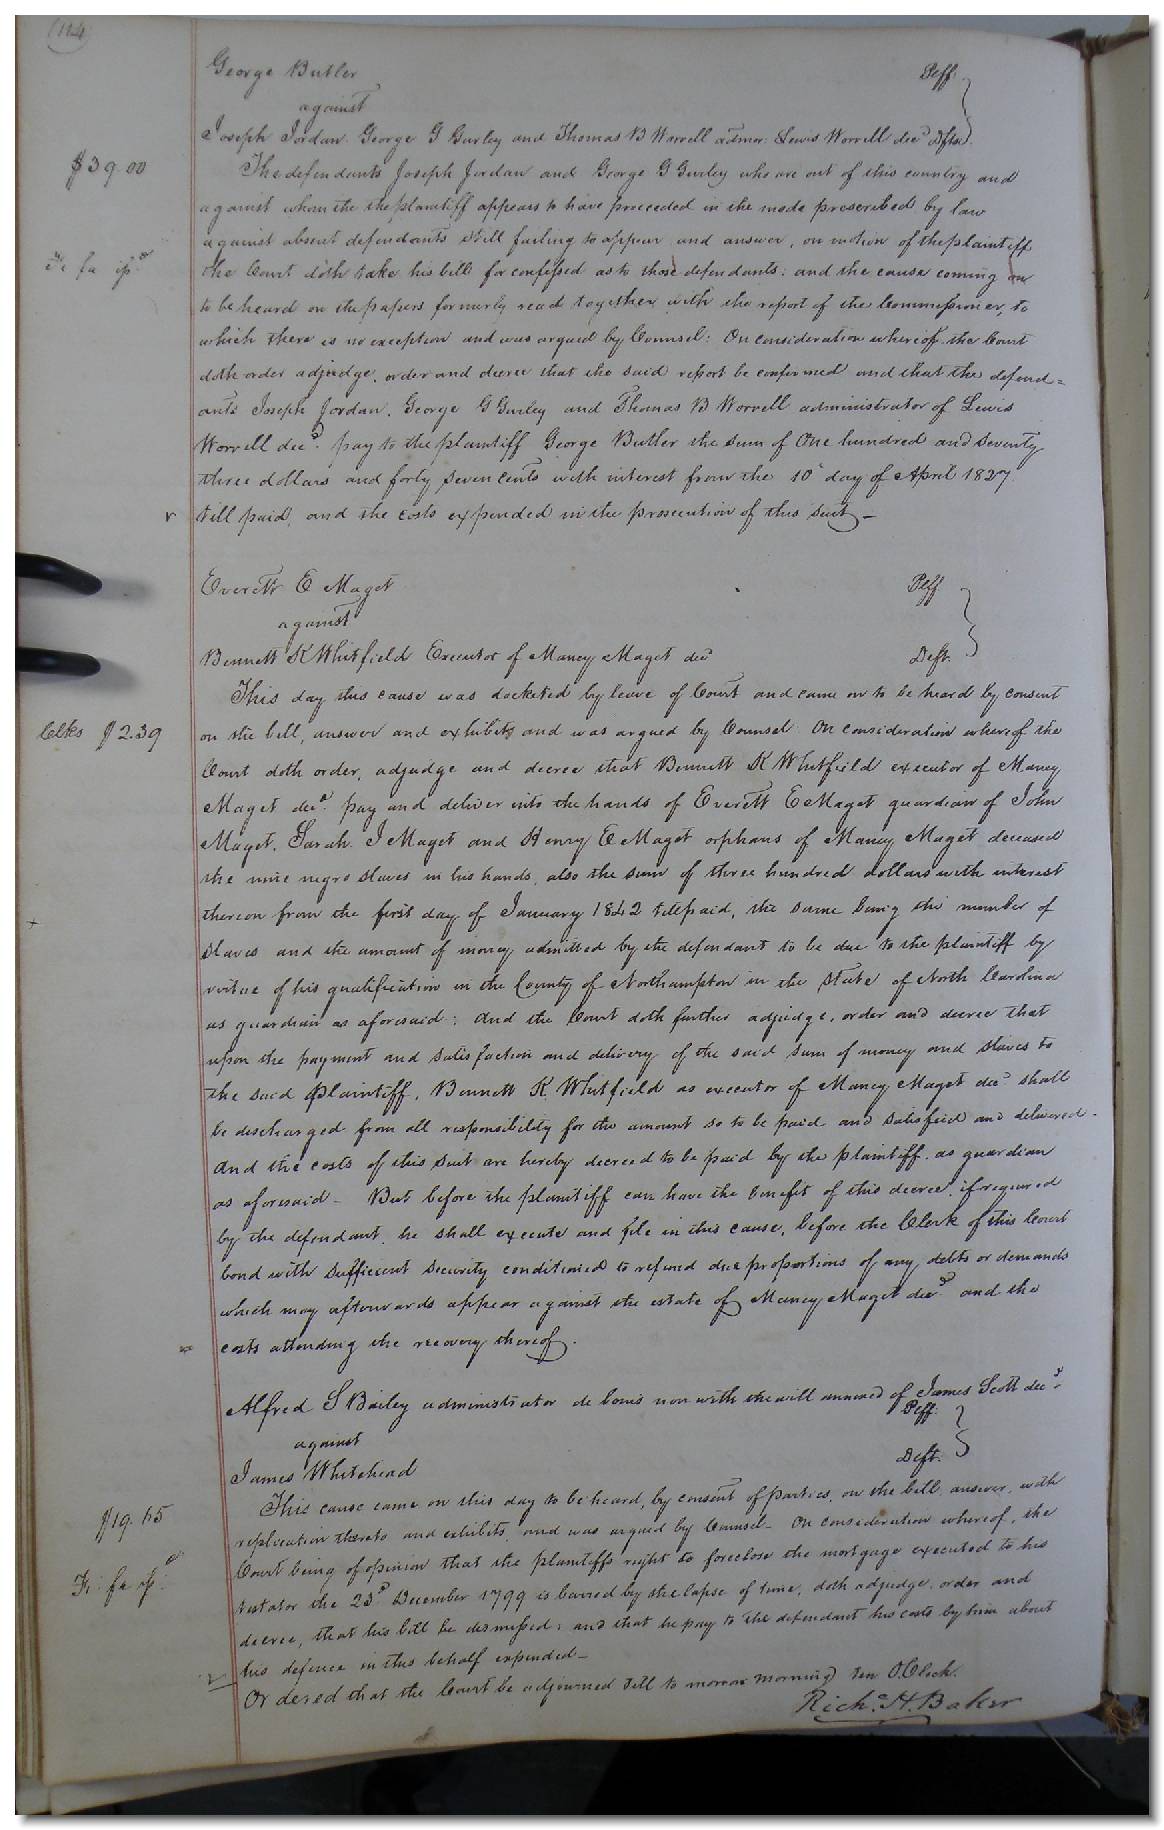 114
George Butler Plff
against
Joseph Jordan George G Gurley and Thomas B Worrell admor. Lewis Worrell decd Defts.
$39.00
The defendants Joseph Jordan and George G Gurley who are out of this country and
against whom the the plaintiff appears to have proceeded in the mode prescribed by law
against absent defendants still failing to appear and answer, on motion of the plaintiff
Fi fa isd
the Court doth take his bill for confessed as to those defendants: and the cause coming on
to be heard on the papers formerly read together with the report of the Commissioner, to
which there is no exception and was argued by Counsel: On consideration whereof the Court
doth order adjudge, order and decree that the said report be confirmed and that the defend=
ants Joseph Jordan, George G Gurley and Thomas B Worrell administrator of Lewis
Worrell decd. pay to the plaintiff George Butler the sum of One hundred and seventy
three dollars and forty seven cents with interest from the 10th day of April 1827
till paid, and the costs expended in the prosecution of this suit –
Everett E Maget Plff
against
Bennett K Whitfield Executor of Mancy Maget decd Deft.
This day this cause was docketed by leave of Court and came on to be heard by consent
Clks $2.39
on the bill, answer and exhibits and was argued by Counsel On consideration whereof the
Court doth order, adjudge and decree that Bennett K Whitfield executor of Mancy
Maget decd. pay and deliver into the hands of Everett E Maget guardian of John
Maget, Sarah I Maget and Henry E Maget orphans of Mancy Maget deceased
the nine negro slaves in his hands, also the sum of three hundred dollars with interest
thereon from the first day of January 1842 till paid, the same being the number of
slaves and the amount of money admitted by the defendant to be due to the plaintiff by
virtue of his qualification in the County of Northampton in the State of North Carolina
as guardian as aforesaid: And the Court doth further adjudge, order and decree that
upon the payment and satisfaction and delivery of the said sum of money and slaves to
the said plaintiff, Bennett K Whitfield as executor of Mancy Maget decd shall
be discharged from all responsibility for the amount so to be paid and satisfied and delivered.
And the costs of this suit are hereby decreed to be paid by the plaintiff as guardian
as aforesaid – But before the plaintiff can have the benefit of this decree, if required
by the defendant, he shall execute and file in this cause, before the Clerk of this Court
bond with sufficient security conditioned to refund due proportions of any debts or demands
which may afterwards appear against the estate of Mancy Maget decd and the
costs attending the recovery thereof.
Alfred S Bailey administrator de bonis non with the will annexed of James Scott decd.
Plff.
against
James Whitehead Deft.
This cause came on this day to be heard, by consent of parties, on the bill, answer, with
$19.65
replication thereto and exhibits, and was argued by Counsel – On consideration whereof, the
Court being of opinion that the plaintiffs right to foreclose the mortgage executed to his
Fi: fa isd:
testator the 23d December 1799 is barred by the lapse of time, doth adjudge, order and
decree, that his bill be dismissed; and that he pay to the defendant his costs by him about
his defence in this behalf expended –
Ordered that the Court be adjourned till to morrow morning ten O.Clock.
Richd. H. Baker